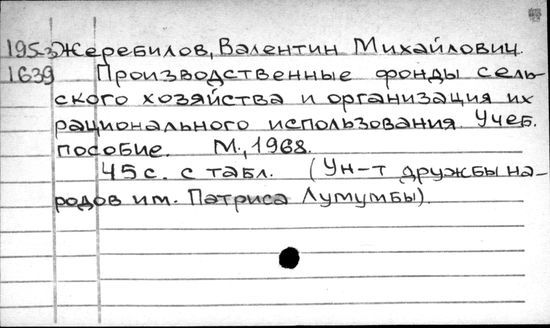 195-3 Жеребилов, Валентин Михайлович.
1639 Производственные фонды сель-
ского хозяйства и организация их
рационального использования. Учеб.
пособие. М., 1968.
45 с. с табл. (Ун-т дружбы на-
родов им. Патриса Лумумбы)